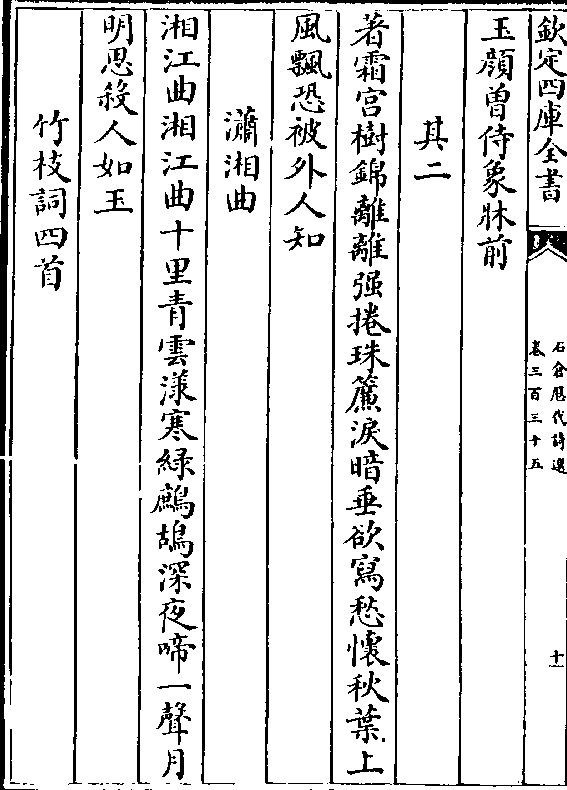 欽定四庫全書
石倉歷代詩選
卷三百三十五
十一
玉顔曽侍象牀前
其二
著霜宫樹錦離離强捲珠簾淚暗垂欲寫愁懷秋葉上
風飄恐被外人知
瀟湘曲
湘江曲湘江曲十里青雲漾寒緑鷓鴣深夜啼一聲月
明思殺人如玉
竹枝詞四首